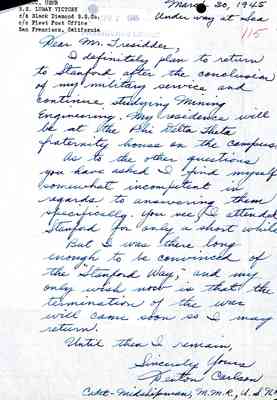 USMM
S.S. LUMAY VICTORY
c/o Black Diamond S.S.Co.
c/o Fleet Post Office
San Francisco, California
March 30, 1945
Under way at Sea
115
Dear Mr. Tresidder,
I definitely plan to return
to Stanford after the conclusion
of my military service and
continue studying Mining
Engineering. My residence will
be at the Phi Delta Theta
fraternity house on the campus.
As to the other questions
you have asked I find myself
somewhat incompetent in
regards to answering them
specifically. You see I attended
Stanford for only a short while
But I was there long
enough to be convinced of
the "Stanford Way," and my
only wish now is that the
termination of the war
will come soon so I may
return.
Until then I remain,
Sincerely Yours
Carlson
Cadet-Midshipman, M.M.R., U.S.N.